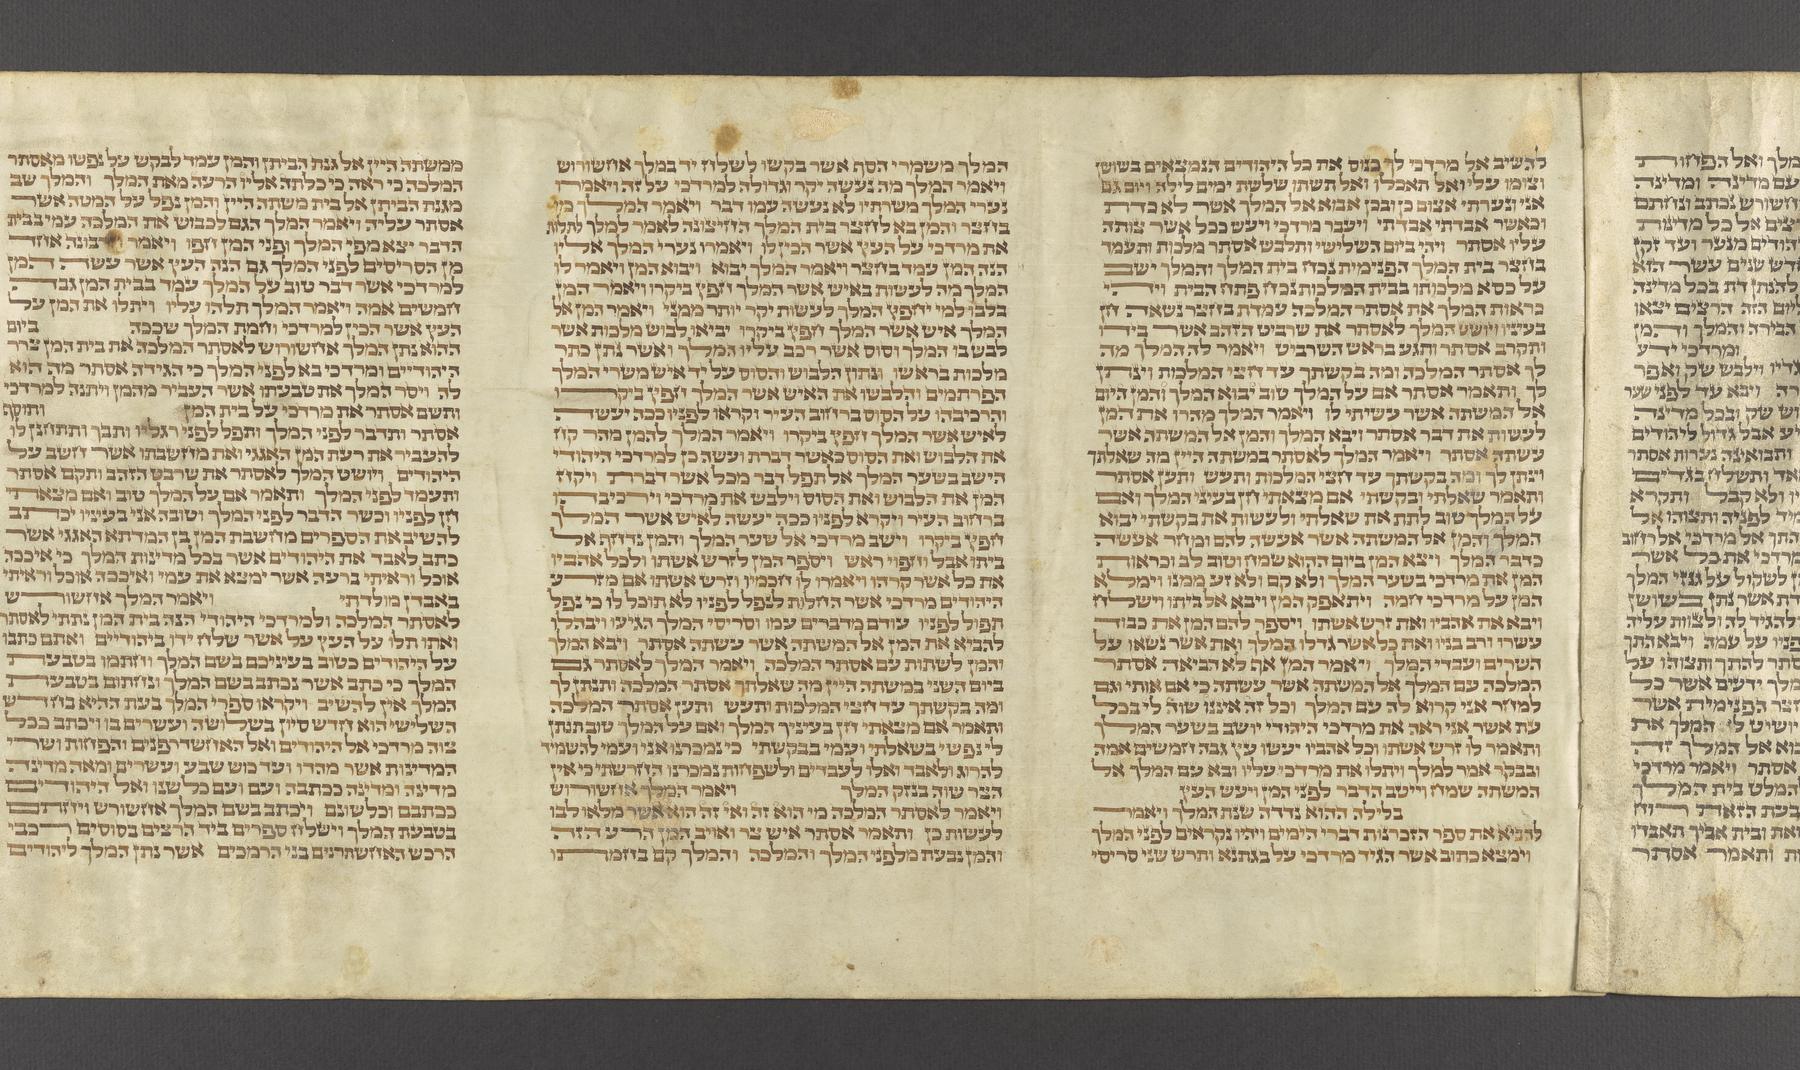 מלך ואל הפחות
עם מדינה ומדינה
חשורש נכתב ונחתם
יצים אל כל מדינות
הודים מנער ועד זקן
דש שנים עשר הוא
להנתן דת בכל מדינה
ליום הזה הרצים יצאו
הבירה והמלך והמן
ומרדכי ידע
גדיו וילבש שק ואפר
רה ויבא עד לפני שער
וש שק ובכל מדינה
יע אבל גדול ליהודים
ותבואינה נערות אסתר
אד ותשלח בגדים
יו ולא קבל ותקרא
מיד לפניה ותצוהו אל
התך אל מרדכי אל רחוב
מרדכי את כל אשר
ן לשקול על גנזי המלך
דת אשר נתן בשושן
ולהגיד לה ולצוות עליה
פניו על עמה ויבא התך
סתר להתך ותצוהו אל
מלך ידעים אשר כל
חצר הפנימית אשר
יושיט לו המלך את
בוא אל המלך זה
אסתר ויאמר מרדכי
המלט בית המלך
בעת הזאת רוח
ואת ובית אביך תאבדו
ות ותאמר אסתר
להשיב אל מרדכי לך כנוס את כל היהודים הנמצאים בשושן
וצומו עלי ואל תאכלו ואל תשתו שלשת ימים לילה ויום גם
אני ונערתי אצום כן ובכן אבוא אל המלך אשר לא כדת
וכאשר אבדתי אבדתי ויעבר מרדכי ויעש ככל אשר צותה
עליו אסתר ויהי ביום השלישי ותלבש אסתר מלכות ותעמד
בחצר בית המלך הפנימית נכח בית המלך והמלך ישב
על כסא מלכותו בבית המלכות נכח פתח הבית ויהי
כראות המלך את אסתר המלכה עמדת בחצר נשאה חן
בעיניו ויושט המלך לאסתר את שרביט הזהב אשר בידו
ותקרב אסתר ותגע בראש השרביט ויאמר לה המלך מה
לך אסתר המלכה ומה בקשתך עד חצי המלכות וינתן
לך ותאמר אסתר אם על המלך טוב יבוא המלך והמן היום
אל המשתה אשר עשיתי לו ויאמר המלך מהרו את המן
לעשות את דבר אסתר ויבא המלך והמן אל המשתה אשר
עשתה אסתר ויאמר המלך לאסתר במשתה היין מה שאלתך
וינתן לך ומה בקשתך עד חצי המלכות ותעש ותען אסתר
ותאמר שאלתי ובקשתי אם מצאתי חן בעיני המלך ואם
על המלך טוב לתת את שאלתי ולעשות את בקשתי יבוא
המלך והמן אל המשתה אשר אעשה להם ומחר אעשה
כדבר המלך ויצא המן ביום ההוא שמח וטוב לב וכראות
המן את מרדכי בשער המלך ולא קם ולא זע ממנו וימלא
המן על מרדכי חמה ויתאפק המן ויבא אל ביתו וישלח
ויבא את אהביו ואת זרש אשתו ויספר להם המן את כבוד
עשרו ורב בניו ואת כל אשר גדלו המלך ואת אשר נשאו על
השרים ועבדי המלך ויאמר המן אף לא הביאה אסתר
המלכה עם המלך אל המשתה אשר עשתה כי אם אותי וגם
למחר אני קרוא לה עם המלך וכל זה איננו שוה לי בכל
עת אשר אני ראה את מרדכי היהודי יושב בשער המלך
ותאמר לו זרש אשתו וכל אהביו יעשו עץ גבה חמשים אמה
ובבקר אמר למלך ויתלו את מרדכי עליו ובא עם המלך אל
המשתה שמח וייטב הדבר לפני המן ויעש העץ
בלילה ההוא נדדה שנת המלך ויאמר
להביא את ספר הזכרנות דברי הימים ויהיו נקראים לפני המלך
וימצא כתוב אשר הגיד מרדכי על בגתנא ותרש שני סריסי
המלך משמרי הסף אשר בקשו לשלוח יד במלך אחשורוש
ויאמר המלך מה נעשה יקר וגדולה למרדכי על זה ויאמרו
נערי המלך משרתיו לא נעשה עמו דבר ויאמר המלך מי
בחצר והמן בא לחצר בית המלך החיצונה לאמר למלך לתלות
את מרדכי על העץ אשר הכין לו ויאמרו נערי המלך אליו
הנה המן עמד בחצר ויאמר המלך יבוא ויבוא המן ויאמר לו
המלך מה לעשות באיש אשר המלך חפץ ביקרו ויאמר המן
בלבו למי יחפץ המלך לעשות יקר יותר ממני ויאמר המן אל
המלך איש אשר המלך חפץ ביקרו יביאו לבוש מלכות אשר
לבש בו המלך וסוס אשר רכב עליו המלך ואשר נתן כתר
מלכות בראשו ונתון הלבוש והסוס על יד איש משרי המלך
הפרתמים והלבשו את האיש אשר המלך חפץ ביקרו
והרכיבהו על הסוס ברחוב העיר וקראו לפניו ככה יעשה
לאיש אשר המלך חפץ ביקרו ויאמר המלך להמן מהר קח
את הלבוש ואת הסוס כאשר דברת ועשה כן למרדכי היהודי
הישב בשער המלך אל תפל דבר מכל אשר דברת ויקח
המן את הלבוש ואת הסוס וילבש את מרדכי וירכיבהו
ברחוב העיר ויקרא לפניו ככה יעשה לאיש אשר המלך
חפץ ביקרו וישב מרדכי אל שער המלך והמן נדחף אל
ביתו אבל וחפוי ראש ויספר המן לזרש אשתו ולכל אהביו
את כל אשר קרהו ויאמרו לו חכמיו וזרש אשתו אם מזרע
היהודים מרדכי אשר החלות לנפל לפניו לא תוכל לו כי נפל
תפול לפניו עודם מדברים עמו וסריסי המלך הגיעו ויבהלו
להביא את המן אל המשתה אשר עשתה אסתר ויבא המלך
והמן לשתות עם אסתר המלכה ויאמר המלך לאסתר גם
ביום השני במשתה היין מה שאלתך אסתר המלכה ותנתן לך
ומה בקשתך עד חצי המלכות ותעש ותען אסתר המלכה
ותאמר אם מצאתי חן בעיניך המלך ואם על המלך טוב תנתן
לי נפשי בשאלתי ועמי בבקשתי כי נמכרנו אני ועמי להשמיד
להרוג ולאבד ואלו לעבדים ולשפחות נמכרנו החרשתי כי אין
הצר שוה בנזק המלך ויאמר המלך אחשורוש
ויאמר לאסתר המלכה מי הוא זה ואי זה הוא אשר מלאו לבו
לעשות כן ותאמר אסתר איש צר ואויב המן הרע הזה
והמן נבעת מלפני המלך והמלכה והמלך קם בחמתו
ממשתה היין אל גנת הביתן והמן עמד לבקש על נפשו מאסתר
המלכה כי ראה כי כלתה אליו הרעה מאת המלך והמלך שב
מגנת הביתן אל בית משתה היין והמן נפל על המטה אשר
אסתר עליה ויאמר המלך הגם לכבוש את המלכה עמי בבית
הדבר יצא מפי המלך ופני המן חפו ויאמר חרבונה אחד
מן הסריסים לפני המלך גם הנה העץ אשר עשה המן
למרדכי אשר דבר טוב על המלך עמד בבית המן גבה
חמשים אמה ויאמר המלך תלהו עליו ויתלו את המן על
העץ אשר הכין למרדכי וחמת המלך שככה ביום
ההוא נתן המלך אחשורוש לאסתר המלכה את בית המן צרר
היהודיים ומרדכי בא לפני המלך כי הגידה אסתר מה הוא
לה ויסר המלך את טבעתו אשר העביר מהמן ויתנה למרדכי
ותשם אסתר את מרדכי על בית המן ותוסף
אסתר ותדבר לפני המלך ותפל לפני רגליו ותבך ותתחנן לו
להעביר את רעת המן האגגי ואת מחשבתו אשר חשב על
היהודים ויושט המלך לאסתר את שרבט הזהב ותקם אסתר
ותעמד לפני המלך ותאמר אם על המלך טוב ואם מצאתי
חן לפניו וכשר הדבר לפני המלך וטובה אני בעיניו יכתב
להשיב את הספרים מחשבת המן בן המדתא האגגי אשר
כתב לאבד את היהודים אשר בכל מדינות המלך כי איככה
אוכל וראיתי ברעה אשר ימצא את עמי ואיככה אוכל וראיתי
באבדן מולדתי ויאמר המלך אחשורוש
לאסתר המלכה ולמרדכי היהודי הנה בית המן נתתי לאסתר
ואתו תלו על העץ על אשר שלח ידו ביהודיים ואתם כתבו
על היהודים כטוב בעיניכם בשם המלך וחתמו בטבעת
המלך כי כתב אשר נכתב בשם המלך ונחתום בטבעת
המלך אין להשיב ויקראו ספרי המלך בעת ההיא בחדש
השלישי הוא חדש סיון בשלושה ועשרים בו ויכתב ככל
צוה מרדכי אל היהודים ואל האחשדרפנים והפחות ושרי
המדינות אשר מהדו ועד כוש שבע ועשרים ומאה מדינה
מדינה ומדינה ככתבה ועם ועם כלשנו ואל היהודים
ככתבם וכלשונם ויכתב בשם המלך אחשורש ויחתם
בטבעת המלך וישלח ספרים ביד הרצים בסוסים רכבי
הרכש האחשתרנים בני הרמכים אשר נתן המלך ליהודים